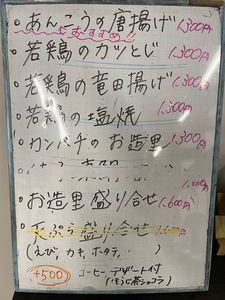 あんこうの唐揚げ 1,300円
おすすめ!!
若鶏のカツとじ 1,300円
若鶏の竜田揚げ 1,300円
若鶏の塩焼 1,300円
カンパチのお造里 1,300円
お造里盛り合せ 1,600円
天ぷら盛り合せ
(えび、カキ、ホタテ、)
+500 コーヒー、デザート付
(ほうじ茶ショコラ)